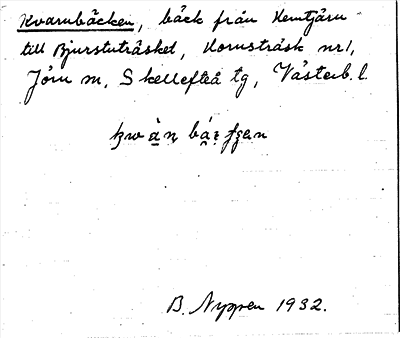 Kvarnbäcken, bäck från Kemtjärn
till Bjurstuträsket, Kornsträsk nr 1,
Jörn sn, Skellefteå tg, Västerb. l.
B. Nyppen 1932.